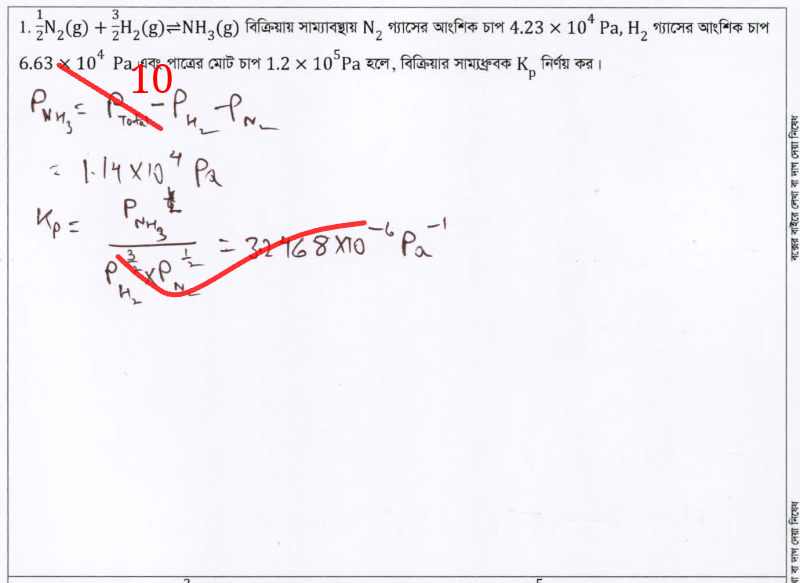 1. ½N₂(g) + 3/2H₂(g)⇌NH₃(g) বিক্রিয়ায় সাম্যাবস্থায় N₂ গ্যাসের আংশিক চাপ 4.23 × 10⁴ Pa, H₂ গ্যাসের আংশিক চাপ
6.63 × 10⁴ Pa এবং পাত্রের মোট চাপ 1.2 × 10⁵Pa হলে, বিক্রিয়ার সাম্যধ্রুবক Kₚ নির্ণয় কর।
10
P_NH₃ = P_Total - P_H₂ - P_N₂
= 1.14 × 10⁴ Pa
Kp = P_NH₃ / (P_H₂^3/2 × P_N₂^1/2) = 32468×10⁻⁶ Pa⁻¹
বক্সের বাইরে লেখা বা দাগ দেয়া নিষেধ
বা দাগ দেয়া নিষেধ